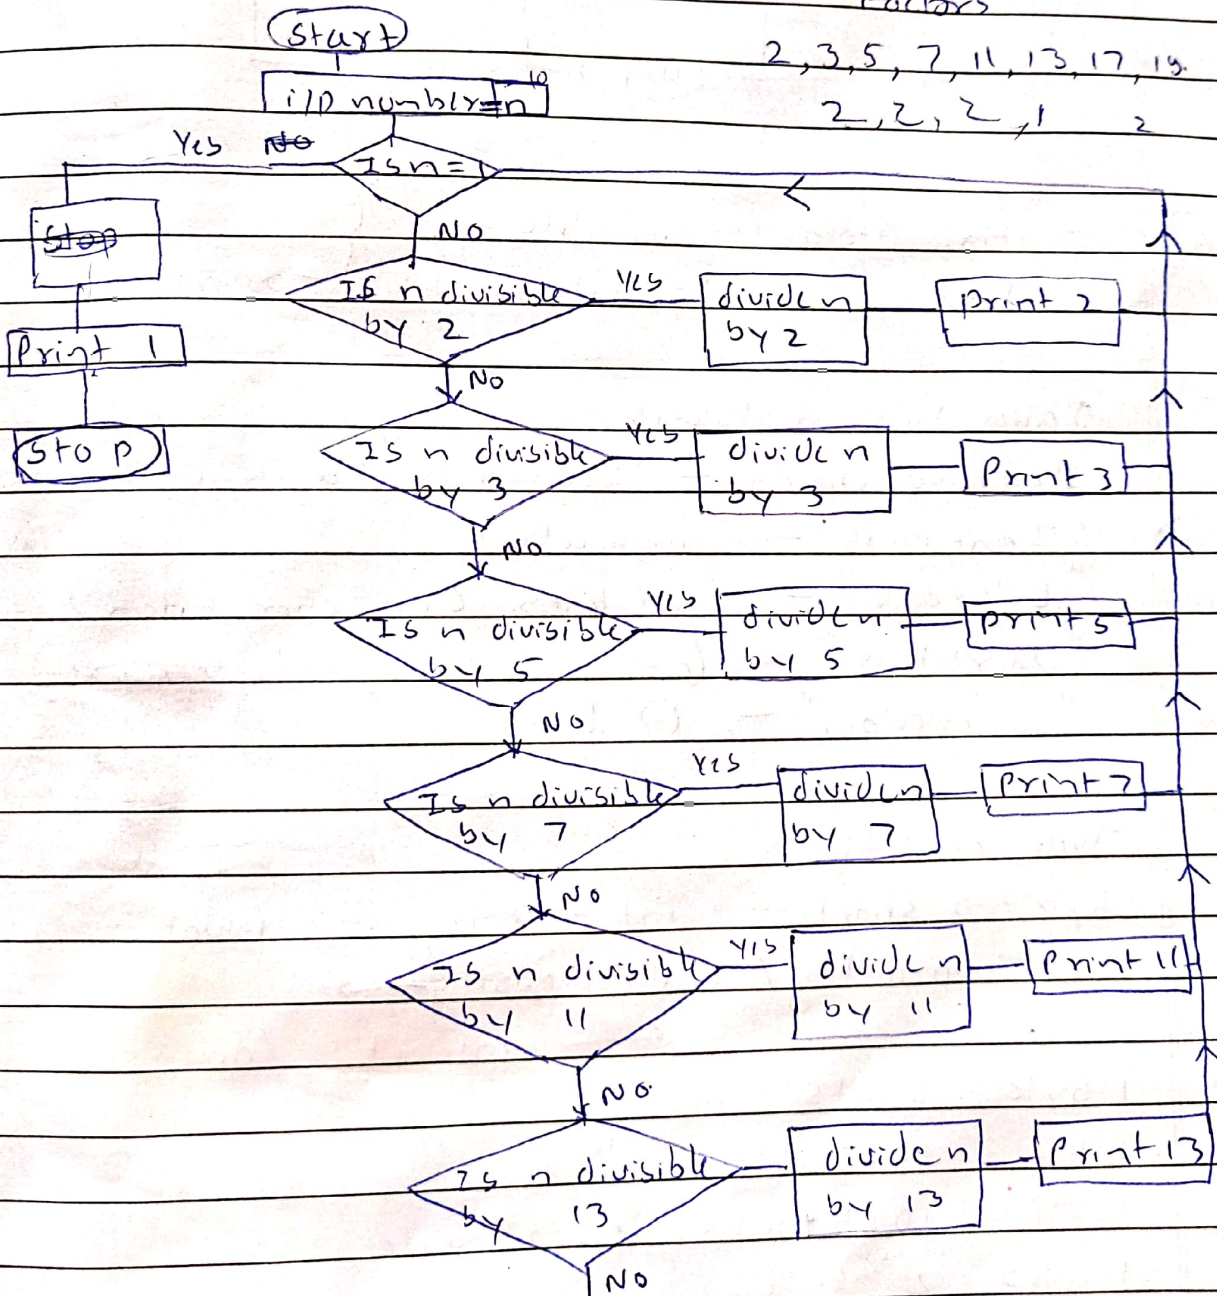 Factors
2, 3, 5, 7, 11, 13, 17, 19.
2, 2, 2, 1 2
Start
10
i/p number = n
Yes No
Is n = 1
Stop
NO
Is n divisible
by 2
Yes
divide n
by 2
Print 2
Print 1
Stop
NO
Is n divisible
by 3
Yes
divide n
by 3
Print 3
NO
Is n divisible
by 5
Yes
divide n
by 5
print 5
NO
Is n divisible
by 7
Yes
divide n
by 7
Print 7
NO
Is n divisible
by 11
Yes
divide n
by 11
Print 11
NO
Is n divisible
by 13
divide n
by 13
Print 13
NO